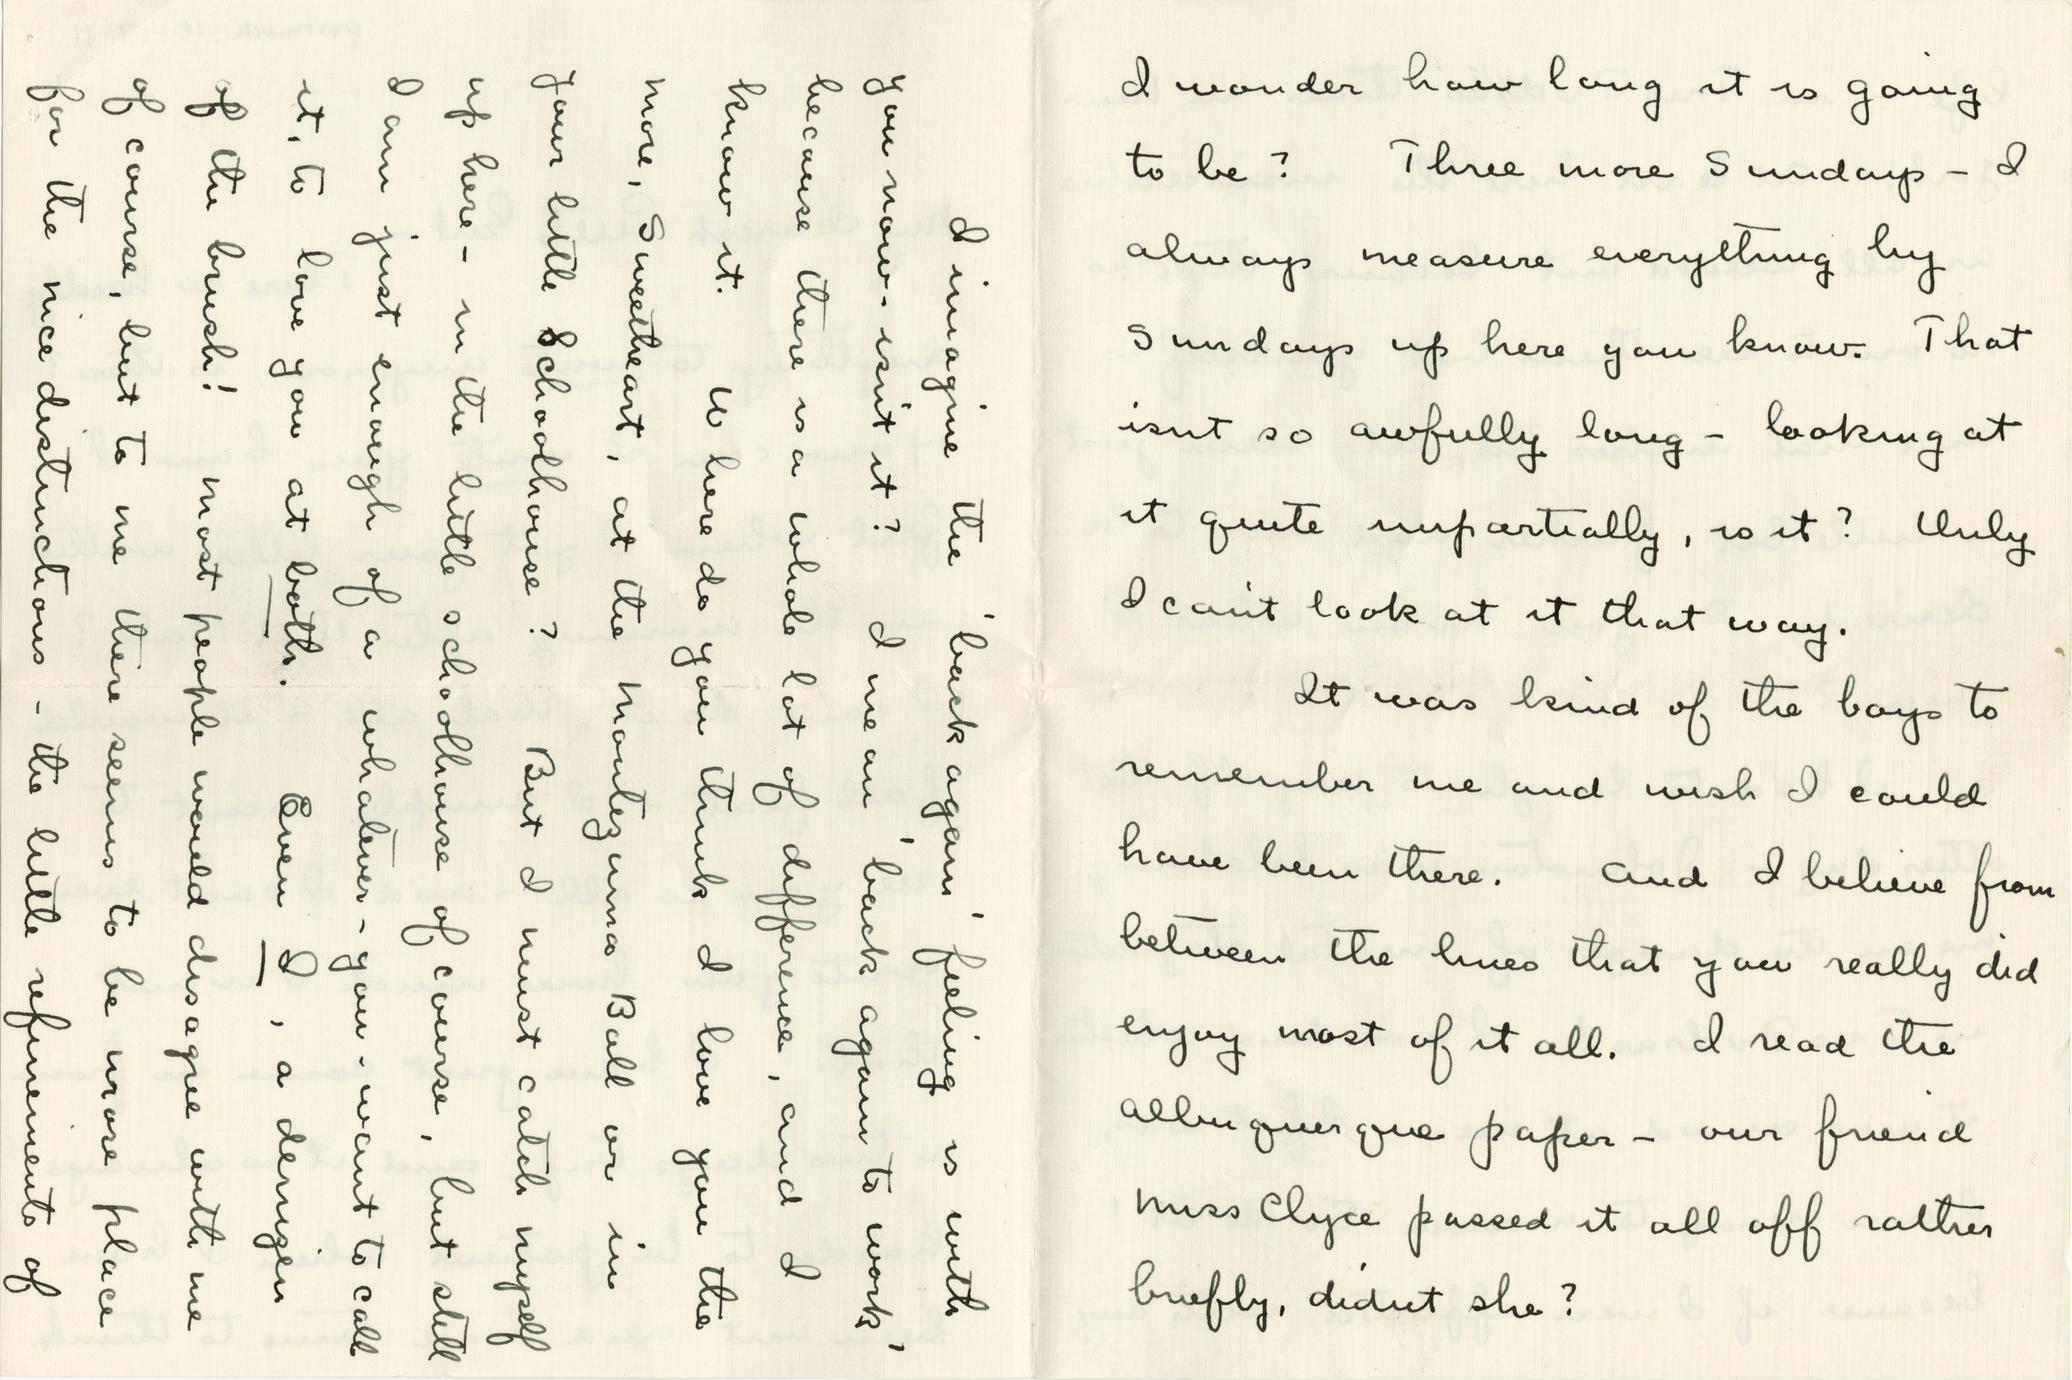 I wonder how long it is going
to be? Three more Sundays - I
always measure everything by
Sundays up here you know. That
isn't so awfully long - looking at
it quite impartially, is it? Only
I can't look at it that way.
It was kind of the boys to
remember me and wish I could
have been there. And I believe from
between the lines that you really did
enjoy most of it all. I read the
Albuquerque paper - our friend
Miss Clyce passed it all off rather
briefly, didn't she?
I imagine the 'back again' feeling is with
you now - isn't it? I mean 'back again to work'
because there is a whole lot of difference, and I
know it. Where do you think I love you the
more, Sweetheart, at the Montezuma Ball or in
your little Schoolhouse? But I must catch myself
up here - in the little schoolhouse of course, but still
I am just enough of a whatever - you - want to call
it, to love you at both. Even I, a denizen
of the brush! Most people would disagree with me
of course, but to me there seems to be more place
for the nice distinctions - the little refinements of